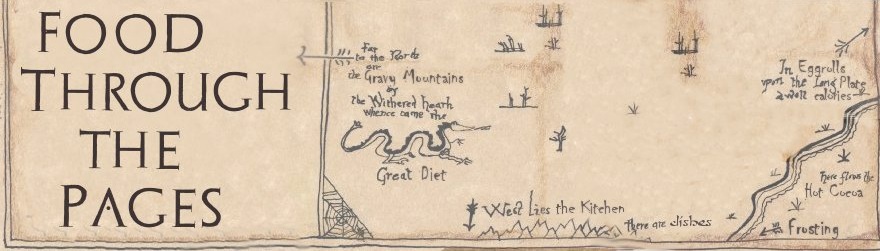 FOOD
THROUGH
THE
PAGES
Far
to the North
are
the Gravy Mountains
by
the Withered Heath
whence came the
Great Diet
West Lies the Kitchen
There are dishes
In Eggrolls
upon the Long Plate
dwell calories
Here flows the
Hot Cocoa
Frosting